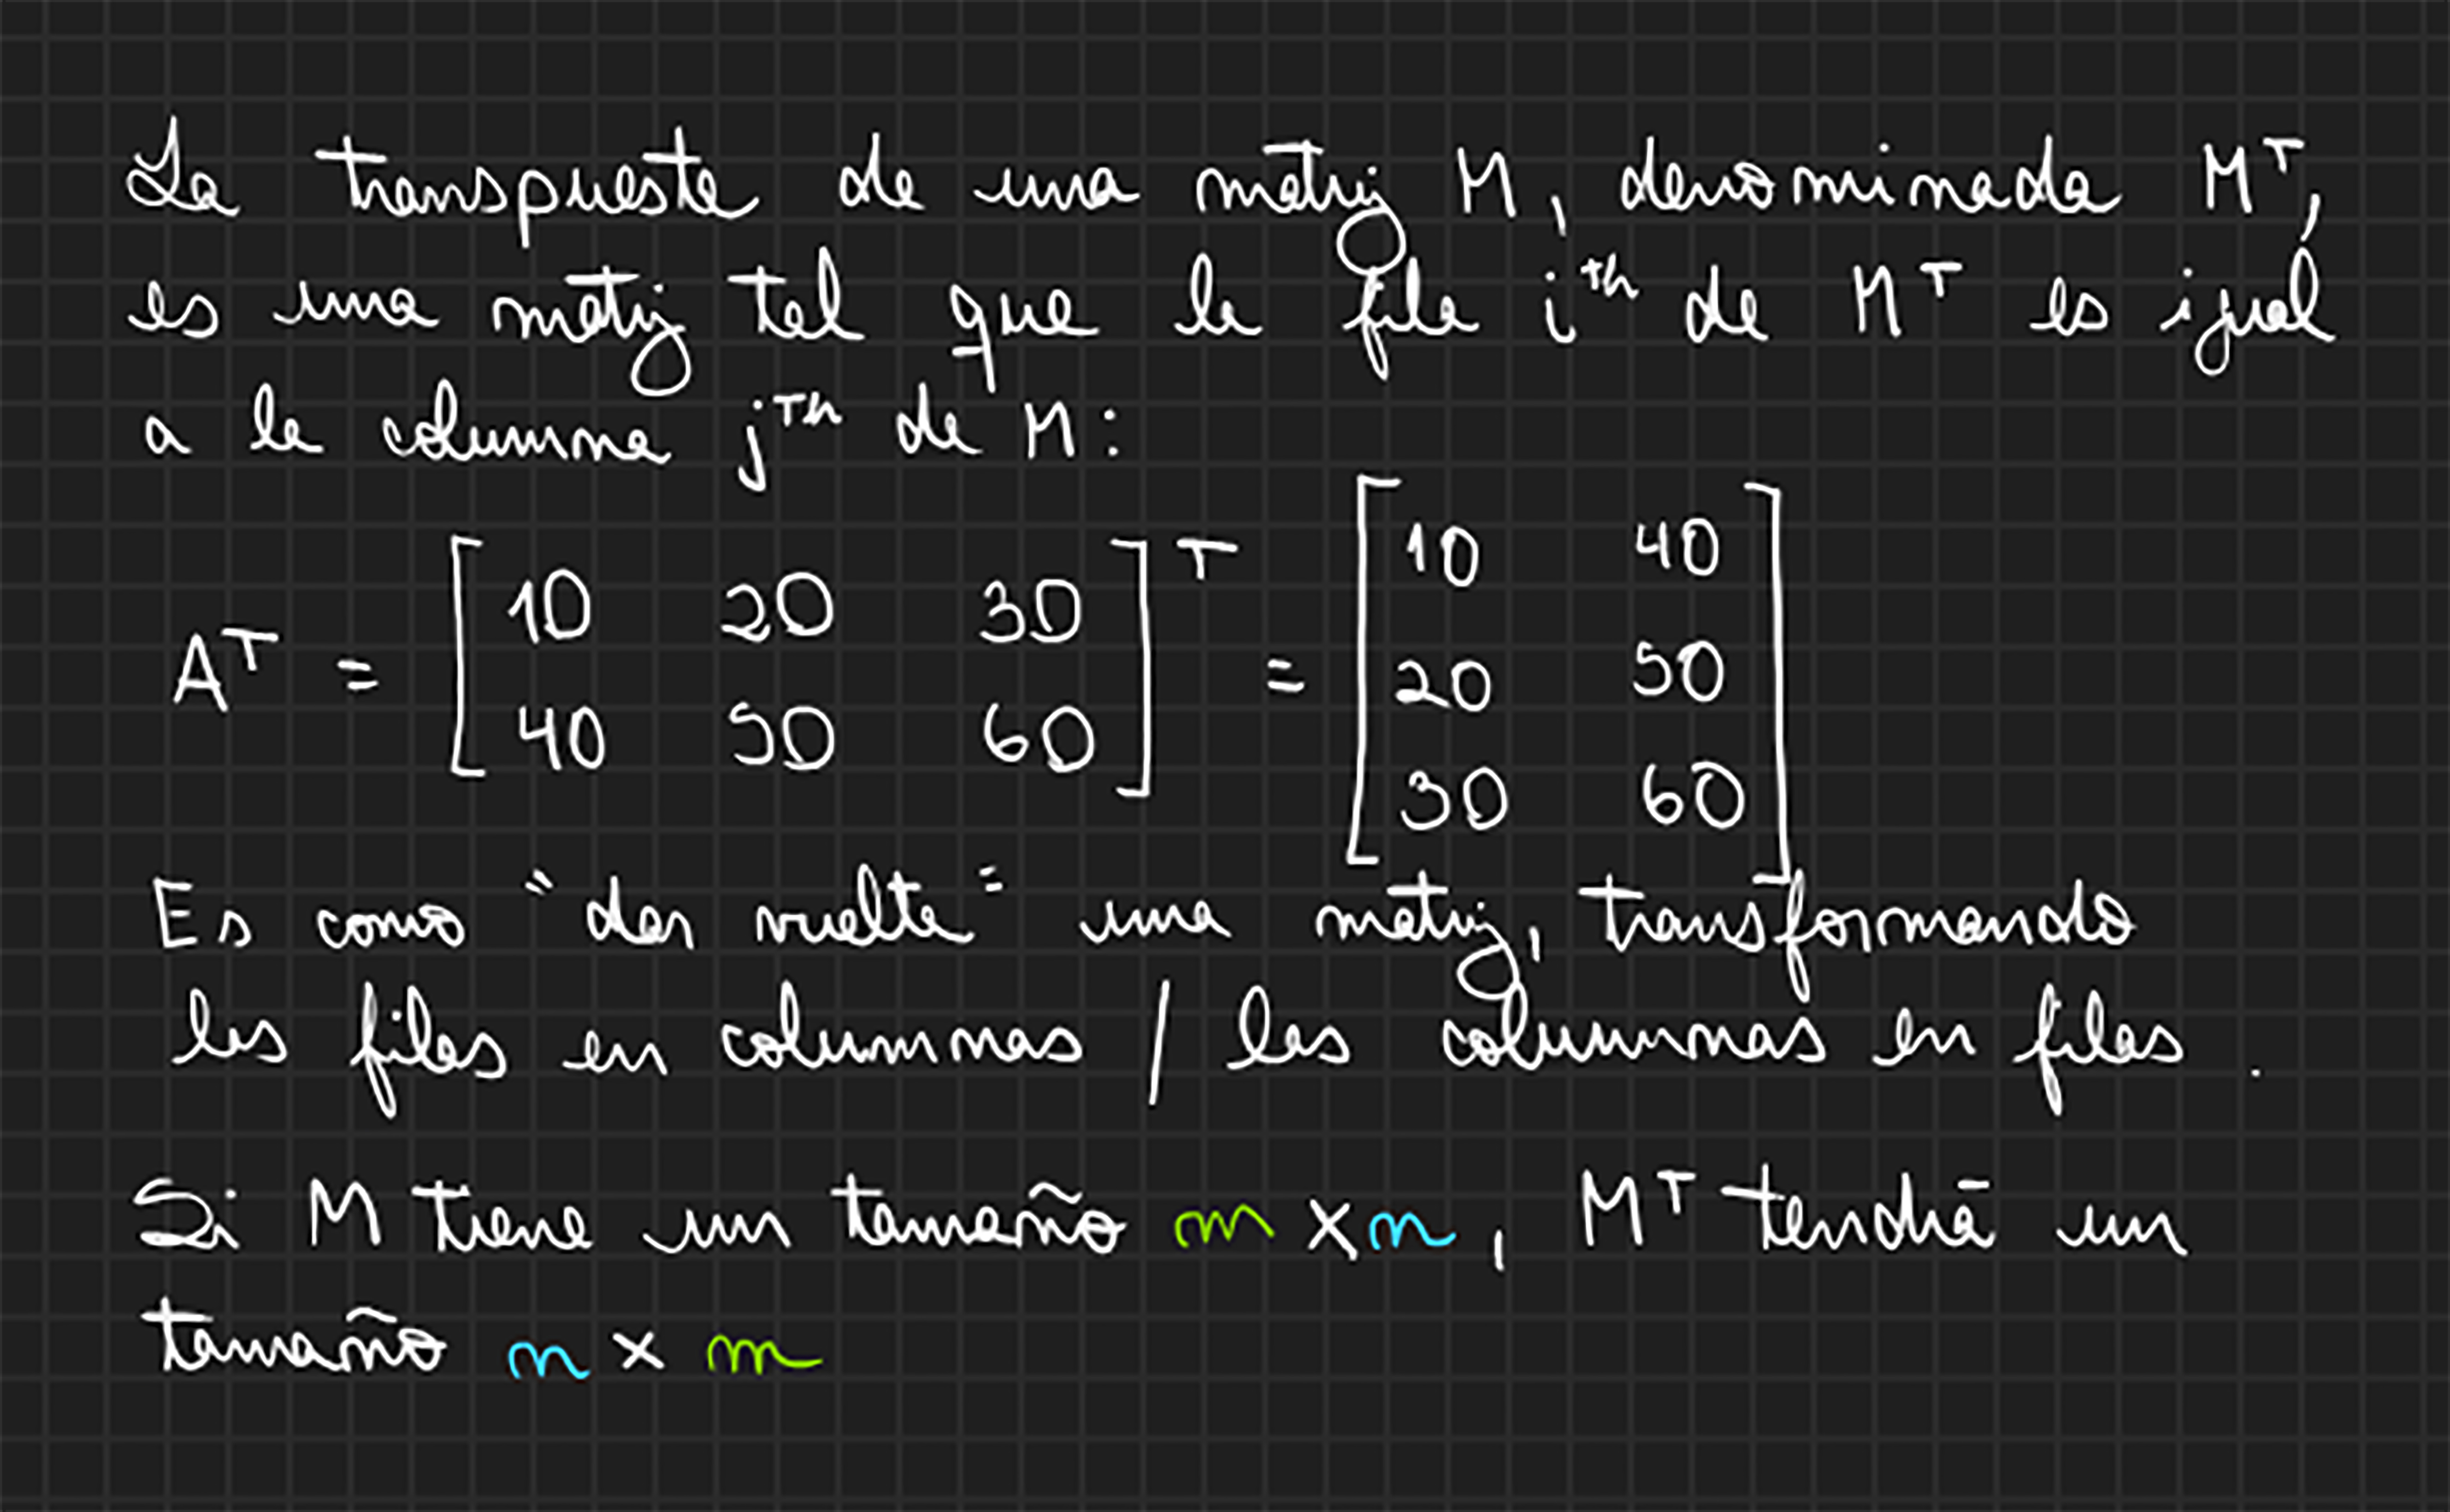 La transpuesta de una matriz M, denominada Mᵀ,
es una matriz tal que la fila iᵗʰ de Mᵀ es igual
a la columna jᵀʰ de M:
Aᵀ = [10 20 30; 40 50 60]ᵀ = [10 40; 20 50; 30 60]
Es como "dar vuelta" una matriz, transformando
las filas en columnas / las columnas en filas.
Si M tiene un tamaño m x n, Mᵀ tendrá un
tamaño n x m